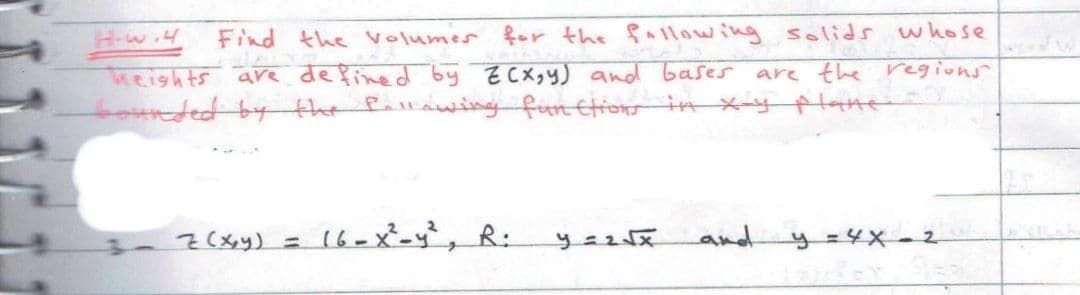 H.w.4 Find the volumes for the following solids whose
heights are defined by z(x,y) and bases are the regions
bounded by the following functions in x-y plane.
3- z(x,y) = 16-x²-y², R: y=2√x and y=4x-2